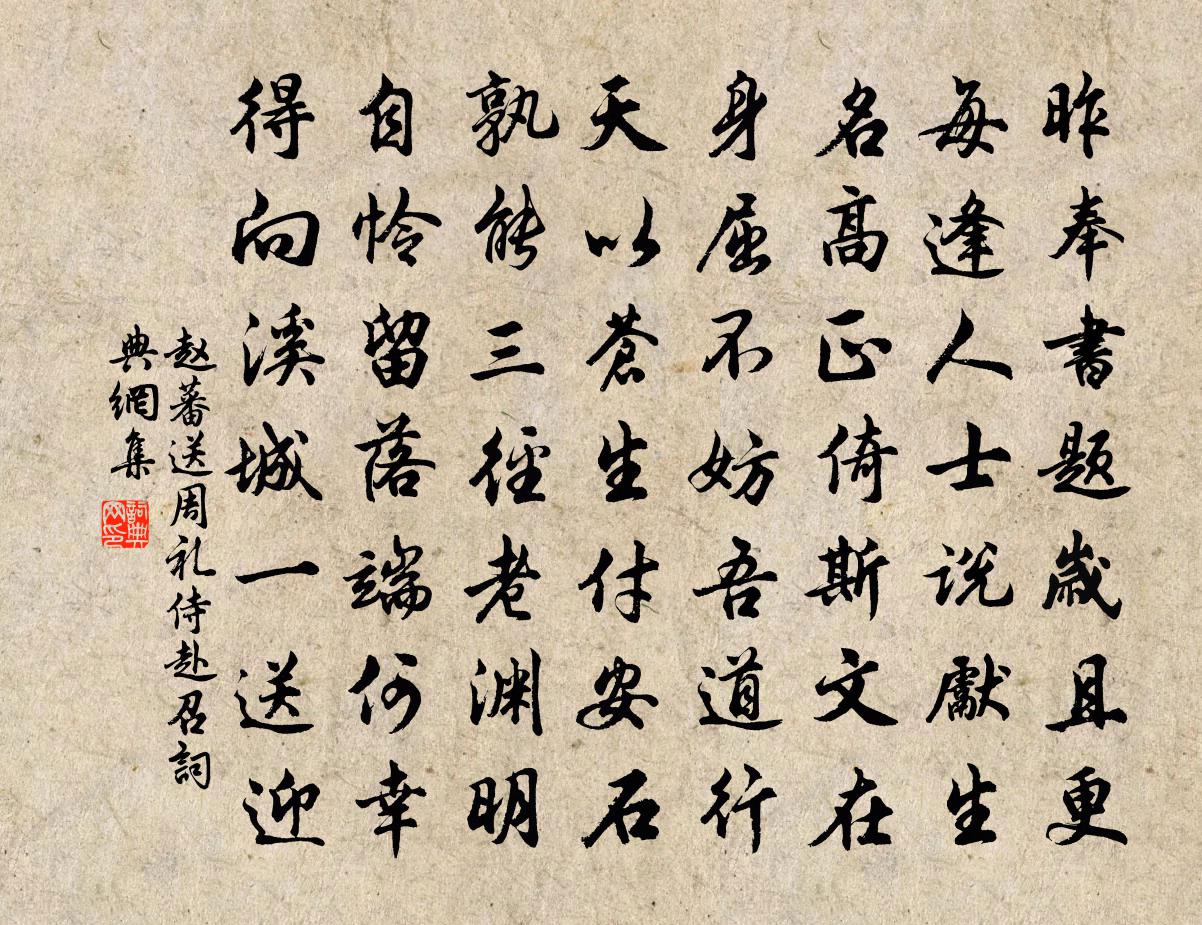 昨奉書題歲且更
每逢人士説獻生
名高正倚斯文在
身屈不妨吾道行
天以蒼生付安石
孰能三徑老淵明
自怜留落端何幸
得向溪城一送迎
赵蕃送周礼侍赴召詞
典網集
詞典
网印